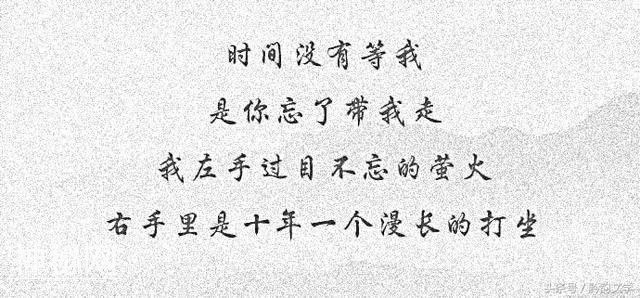 时间没有等我
是你忘了带我走
我左手过目不忘的萤火
右手里是十年一个漫长的打坐